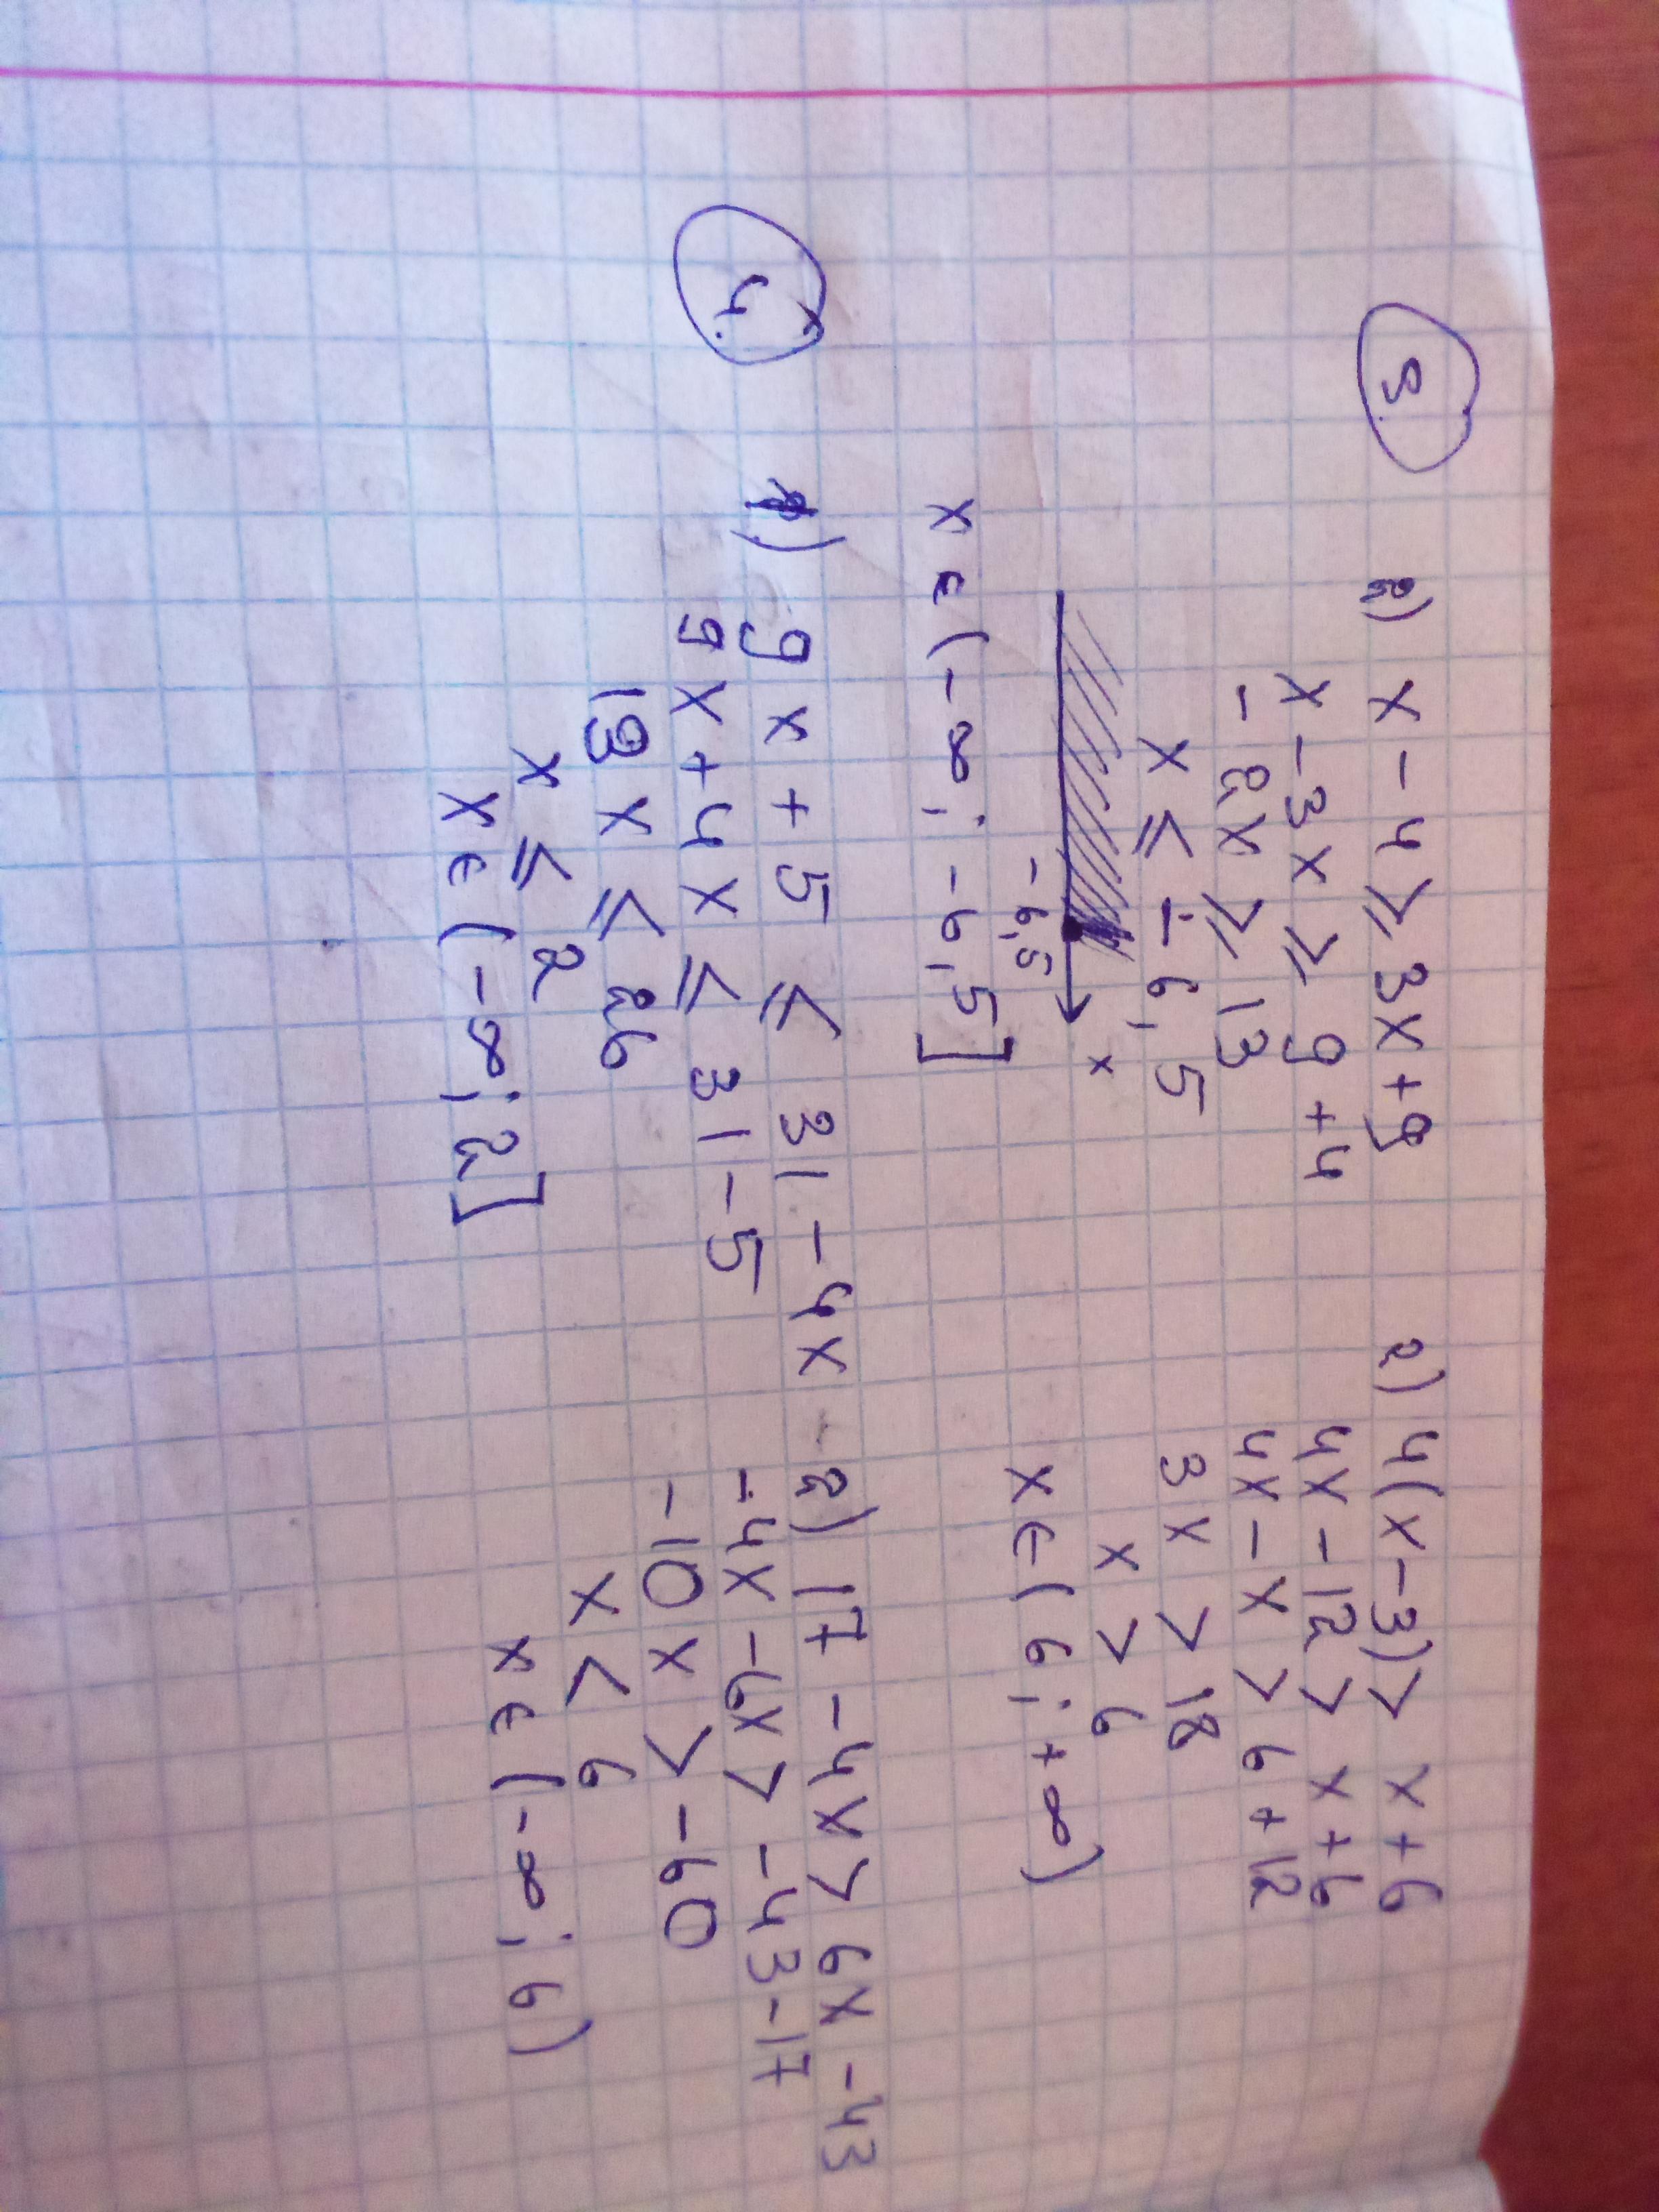 3.
2) x - 4 ⩾ 3x + 9
x - 3x ⩾ 9 + 4
- 2x ⩾ 13
x ⩽ - 6,5
x
-6,5
x ∈ (-∞; -6,5]
2) 4(x-3) > x + 6
4x - 12 > x + 6
4x - x > 6 + 12
3x > 18
x > 6
x ∈ (6; +∞)
4.
1) 9x + 5 ⩽ 31 - 4x
9x + 4x ⩽ 31 - 5
13x ⩽ 26
x ⩽ 2
x ∈ (-∞; 2]
2) 17 - 4x > 6x - 43
-4x - 6x > -43 - 17
-10x > -60
x < 6
x ∈ (-∞; 6)